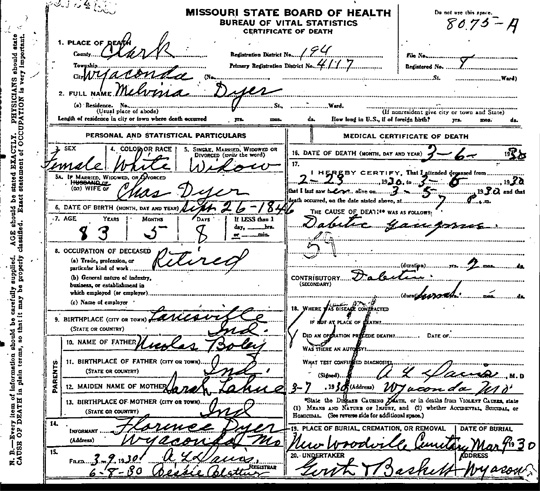 MISSOURI STATE BOARD OF HEALTH
BUREAU OF VITAL STATISTICS
CERTIFICATE OF DEATH
Do not use this space.
8075-A
1. PLACE OF DEATH
County Clark Registration District No. 194 File No.
Township Primary Registration District No. 4117 Registered No. 8
City Wyaconda (No. St. Ward)
2. FULL NAME Melvina Dyer
(a) Residence. No. St., Ward.
(Usual place of abode) (If nonresident give city or town and State)
Length of residence in city or town where death occurred yrs. mos. ds. How long in U.S., if of foreign birth? yrs. mos. ds.
PERSONAL AND STATISTICAL PARTICULARS
3. SEX 4. COLOR OR RACE 5. SINGLE, MARRIED, WIDOWED OR DIVORCED (write the word)
Female White Widow
5A. IF MARRIED, WIDOWED, OR DIVORCED
HUSBAND OF
(OR) WIFE OF Chas Dyer
6. DATE OF BIRTH (MONTH, DAY AND YEAR) 26-1846
7. AGE YEARS MONTHS DAYS If LESS than 1 day, hrs. or min.
83 5 8
8. OCCUPATION OF DECEASED
(a) Trade, profession, or particular kind of work Retired
(b) General nature of industry, business, or establishment in which employed (or employer)
(c) Name of employer
9. BIRTHPLACE (CITY OR TOWN)
(STATE OR COUNTRY) Ind.
10. NAME OF FATHER Nicolas Boley
11. BIRTHPLACE OF FATHER (CITY OR TOWN)
(STATE OR COUNTRY) Ind.
12. MAIDEN NAME OF MOTHER Sarah
13. BIRTHPLACE OF MOTHER (CITY OR TOWN)
(STATE OR COUNTRY) Ind
PARENTS
14. INFORMANT Florence Dyer
(Address) Wyaconda Mo
15. FILED 3-9 1930 A L Davis
6-8-30 REGISTRAR
MEDICAL CERTIFICATE OF DEATH
16. DATE OF DEATH (MONTH, DAY AND YEAR) 3-6- 1930
17.
I HEREBY CERTIFY, That I attended deceased from
2-23 1930 to 3-6 1930
that I last saw her alive on 3-5 1930 and that
death occurred, on the date stated above, at 7 m.
THE CAUSE OF DEATH* WAS AS FOLLOWS:
59
(duration) yrs. mos. ds.
CONTRIBUTORY
(SECONDARY)
(duration) yrs. mos. ds.
18. WHERE WAS DISEASE CONTRACTED
IF NOT AT PLACE OF DEATH?
DID AN OPERATION PRECEDE DEATH? DATE OF
WAS THERE AN AUTOPSY?
WHAT TEST CONFIRMED DIAGNOSIS?
(Signed) A L Davis, M.D
3-7, 1930 (Address) Wyaconda Mo
*State the DISEASE CAUSING DEATH, or in deaths from VIOLENT CAUSES, state
(1) MEANS AND NATURE OF INJURY, and (2) whether ACCIDENTAL, SUICIDAL, or
HOMICIDAL. (See reverse side for additional space.)
19. PLACE OF BURIAL, CREMATION, OR REMOVAL DATE OF BURIAL
New Woodville Cemetery Mar 9 1930
20. UNDERTAKER ADDRESS
Gerth & Baskett Wyaconda
N. B.—Every item of information should be carefully supplied. AGE should be stated EXACTLY. PHYSICIANS should state
CAUSE OF DEATH in plain terms, so that it may be properly classified. Exact statement of OCCUPATION is very important.